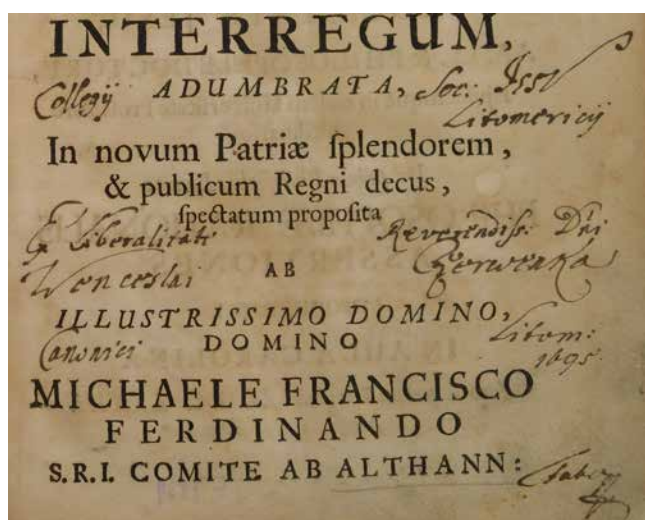 INTERREGUM,
Collegij ADUMBRATA, Soc: Iesu
Litomericij
In novum Patriæ ſplendorem,
& publicum Regni decus,
ſpectatum propoſita
Ex liberalitati Reverendiſs: Dni
Wenceslai AB Czerwenka
ILLUSTRISSIMO DOMINO,
Canonici DOMINO Litom:
1695.
MICHAELE FRANCISCO
FERDINANDO
S.R.I. COMITE AB ALTHANN: